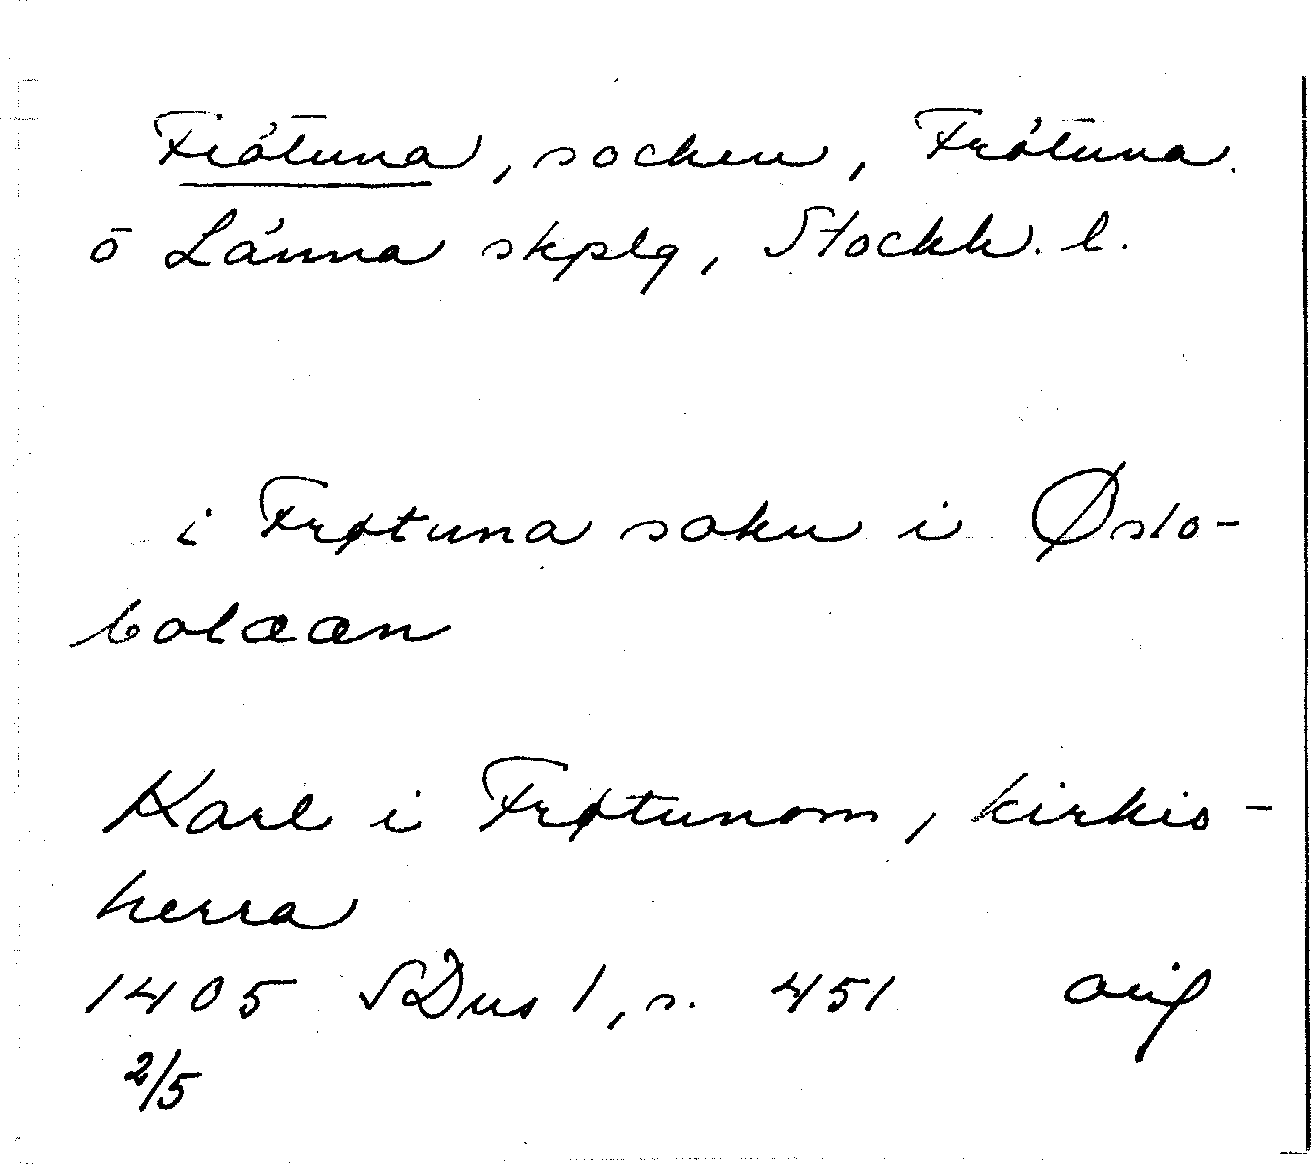 Frötuna, socken, Frötuna
o Länna skplg, Stockh. l.
i Frøtuna sokn i Øslo-
bolææn
Karl i Frøtunom, kirkio-
herra
1405 SDns 1, s. 451 orig
2/5